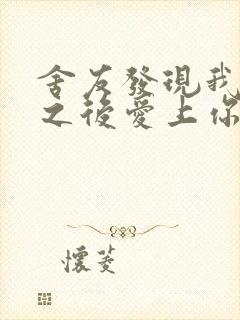 舍友發現我
之後愛上你
懷菱